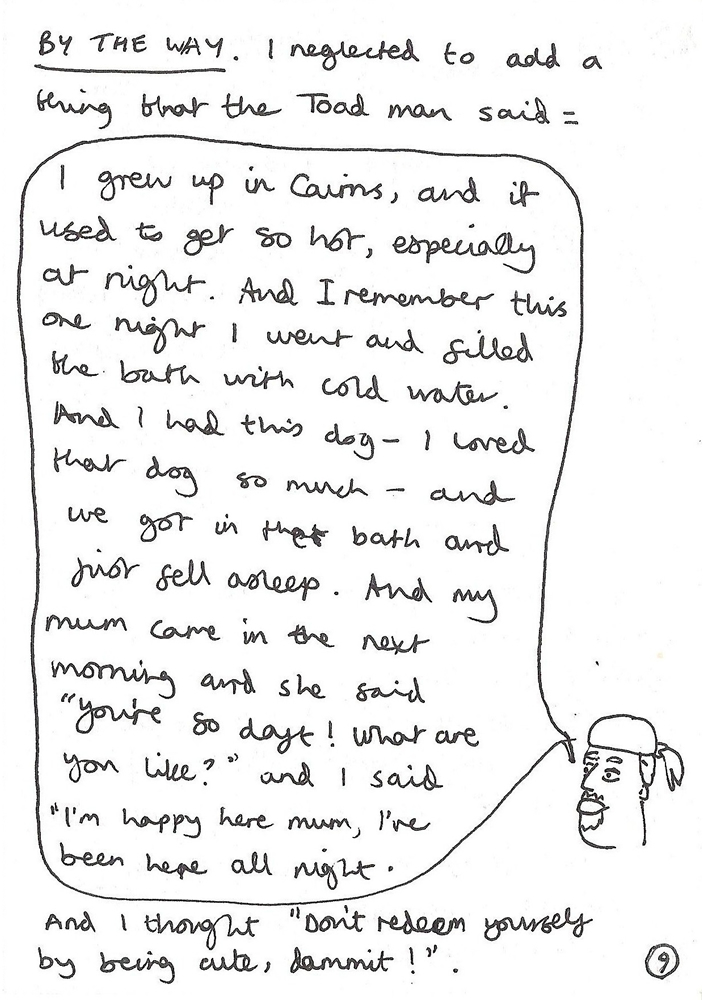 BY THE WAY. I neglected to add a
thing that the Toad man said =
I grew up in Cairns, and it
used to get so hot, especially
at night. And I remember this
one night I went and filled
the bath with cold water.
And I had this dog - I loved
that dog so much - and
we got in the bath and
just fell asleep. And my
mum came in the next
morning and she said
"You're so daft! What are
you like?" and I said
"I'm happy here mum, I've
been here all night.
And I thought "Don't redeem yourself
by being cute, dammit!".
9